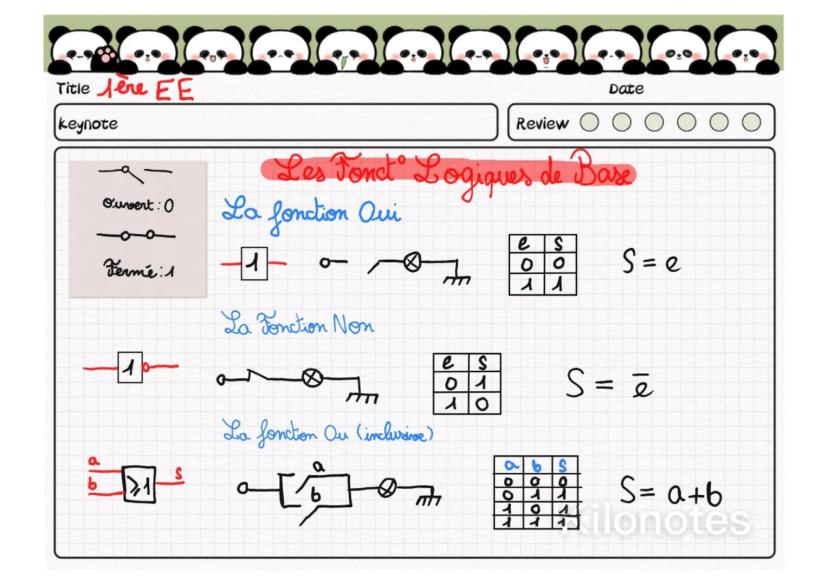 Title 1ère EE
Date
Keynote
Review
Les Fonct° Logiques de Base
Ouvert : 0
Fermé : 1
La fonction Oui
1
e s
0 0
1 1
S = e
La Fonction Non
1
e s
0 1
1 0
S = ē
La fonction Ou (inclusive)
a
b
≥1
s
a
b
a b s
0 0 0
0 1 1
1 0 1
1 1 1
S = a+b
Kilonotes